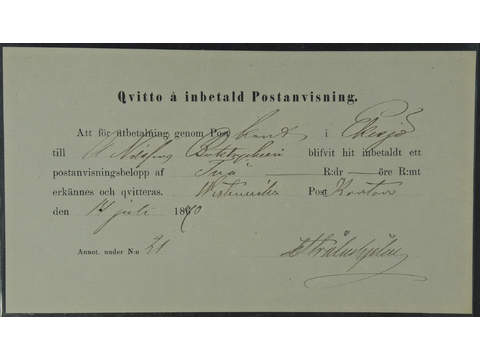 Qvitto å inbetald Postanvisning.
Att för utbetalning genom Post Kont i Eksjö
till Boktryckeri blifvit hit inbetaldt ett
postanvisningsbelopp af R:dr öre R:mt
erkännes och qvitteras. Post Kontor
den 14 juli 1870
Annot. under N:o 21